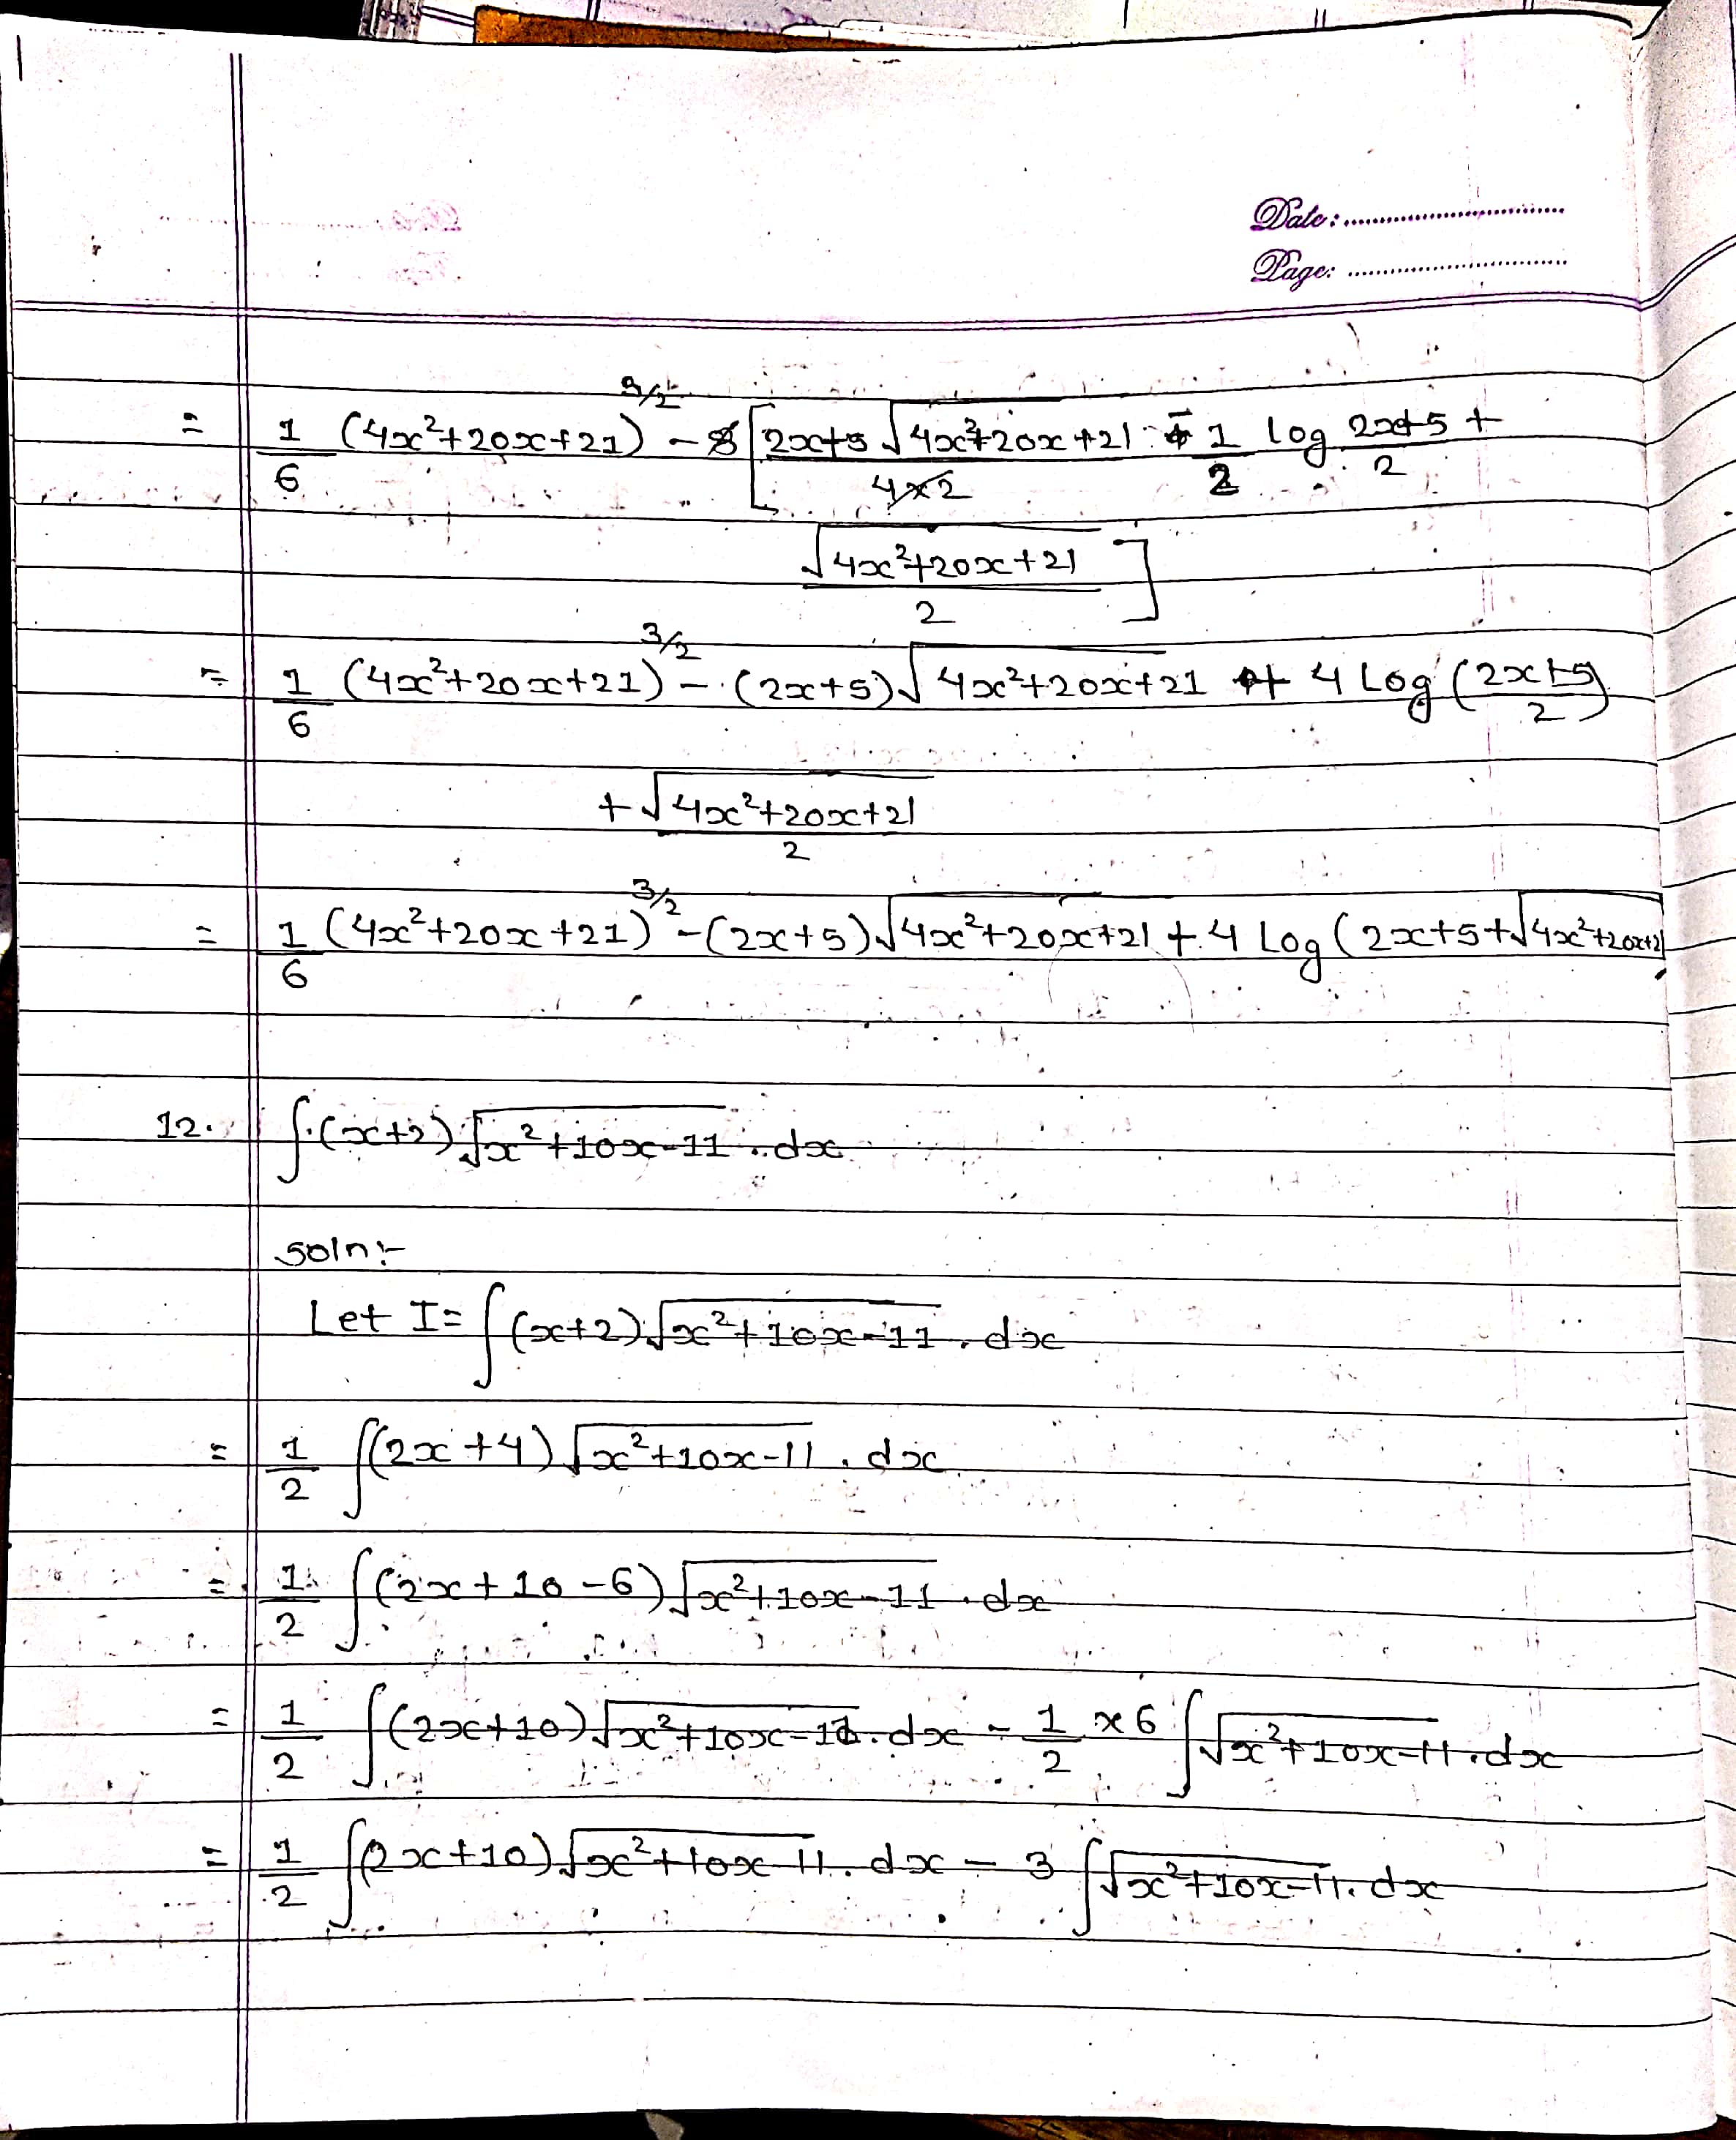 Date: ..............................
Page: ..............................
= 1/6 (4x²+20x+21)^3/2 - 8[2x+5/4×2 √4x²+20x+21 - 1/2 log 2x+5/2 +
√4x²+20x+21/2 ]
= 1/6 (4x²+20x+21)^3/2 - (2x+5)√4x²+20x+21 + 4 Log (2x+5/2)
+ √4x²+20x+21/2
= 1/6 (4x²+20x+21)^3/2 - (2x+5)√4x²+20x+21 + 4 Log (2x+5+√4x²+20x+21
12. ∫(x+2)√x²+10x-11 . dx
soln:-
Let I = ∫(x+2)√x²+10x-11 . dx
= 1/2 ∫(2x+4)√x²+10x-11 . dx
= 1/2 ∫(2x+10-6)√x²+10x-11 . dx
= 1/2 ∫(2x+10)√x²+10x-11 . dx - 1/2 × 6 ∫√x²+10x-11 . dx
= 1/2 ∫(2x+10)√x²+10x-11 . dx - 3 ∫√x²+10x-11 . dx